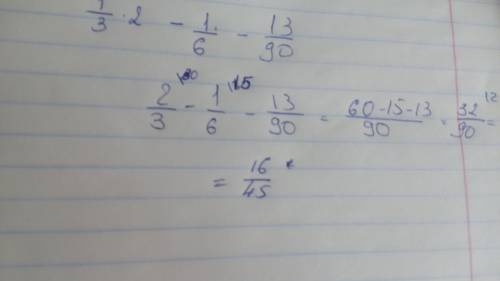 1/3 · 2 - 1/6 - 13/90
2/3 \30 - 1/6 \15 - 13/90 = (60-15-13)/90 = 32/90 =
= 16/45